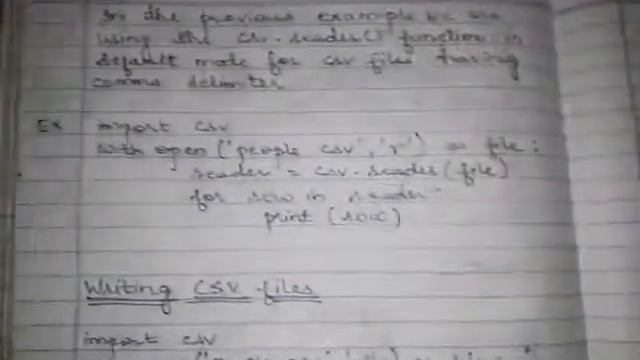 In the previous example we are
using the csv.reader() function in
default mode for csv files having
comma delimiter
Ex import csv
with open ('people csv', 'r') as file:
reader = csv.reader(file)
for row in reader
print (row)
Writing CSV files
import csv